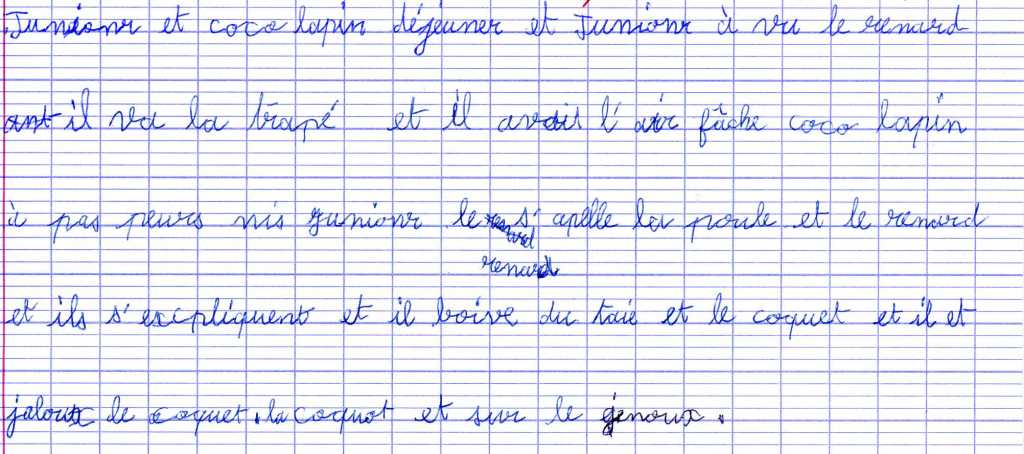 Junionr et coco lapin déjeuner et Junionr à vu le renard
ont il va la trapé et il avait l'air fâche coco lapin
à pas peurs nis Junionr le s'apelle la poule et le renard
renard
et ils s'excpliquent et il boive du taié et le coquet et il et
jaloux de coquet. la coquot et sur le genoux.